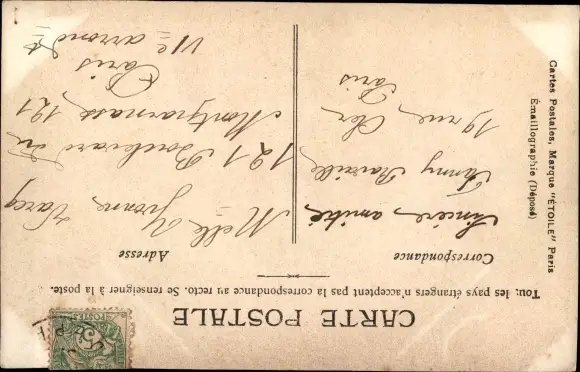 CARTE POSTALE
Tous les pays étrangers n'acceptent pas la correspondance au recto. Se renseigner à la poste.
Correspondance
Sincère amitié
Fanny
19 rue, Cler
Paris
Adresse
Melle Yvonne Varcq
121 Boulevard du
Montparnasse 121
Paris
VIe arrondt
Cartes Postales, Marque "ÉTOILE" Paris
Émaillographie (Déposé)
POSTES